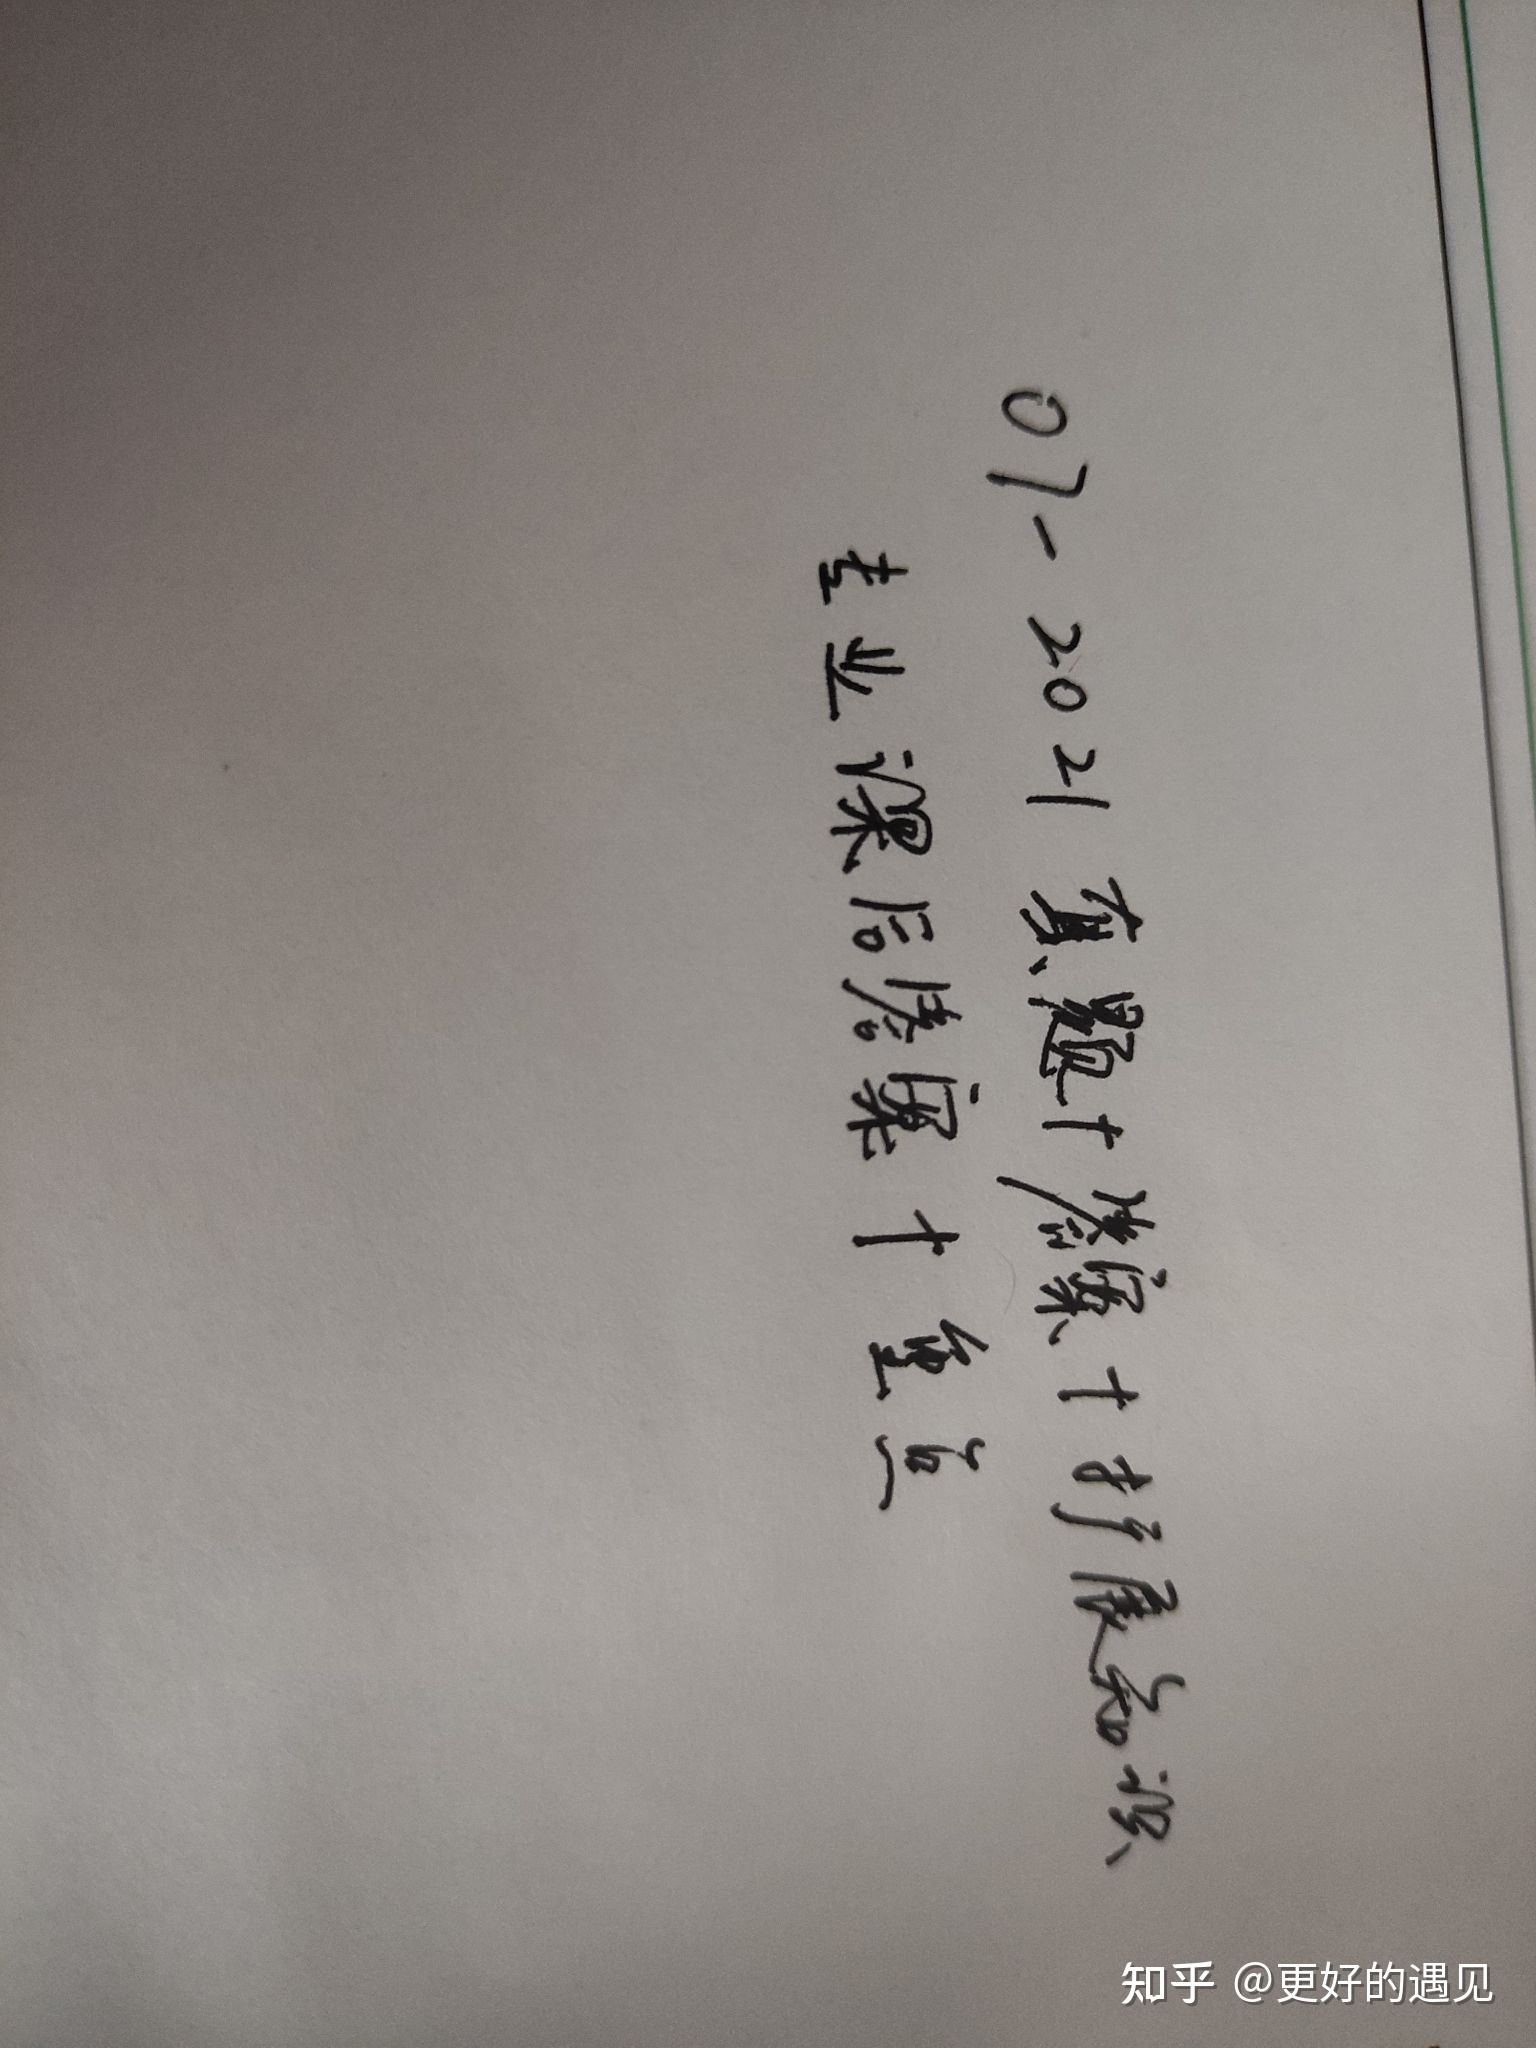 07-2021真题+答案+扩展知识
专业课后答案+重点
知乎 @更好的遇见